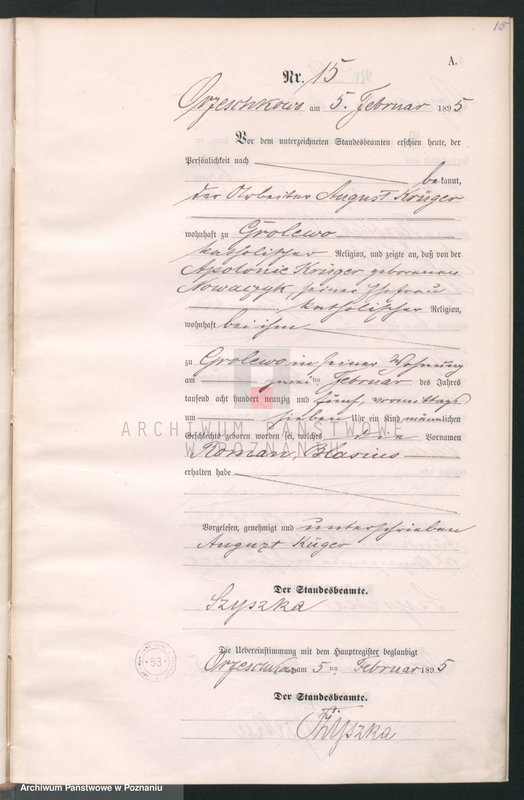 15
A.
Nr. 15
Orzeschkowo am 5. Februar 1895
Vor dem unterzeichneten Standesbeamten erschien heute, der
Persönlichkeit nach
bekannt,
der Arbeiter August Krüger
wohnhaft zu Grolewo
katholischer Religion, und zeigte an, daß von der
Apolonie Krüger geborenen
Nowaczyk, seiner Ehefrau
katholischer Religion,
wohnhaft bei ihm
zu Grolewo in seiner Wohnung
am zwei ten Februar des Jahres
tausend acht hundert neunzig und fünf, vormittags
um sieben Uhr ein Kind männlichen
Geschlechts geboren worden sei, welches die Vornamen
Roman, Blasius
erhalten habe
Vorgelesen, genehmigt und unterschrieben
Auguzt Küger
Der Standesbeamte.
Szyszka
Die Uebereinstimmung mit dem Hauptregister beglaubigt
Orzeschkowo am 5 ten Februar 1895
Der Standesbeamte.
Szyszka
53
ARCHIWUM PAŃSTWOWE
W POZNANIU
Archiwum Państwowe w Poznaniu